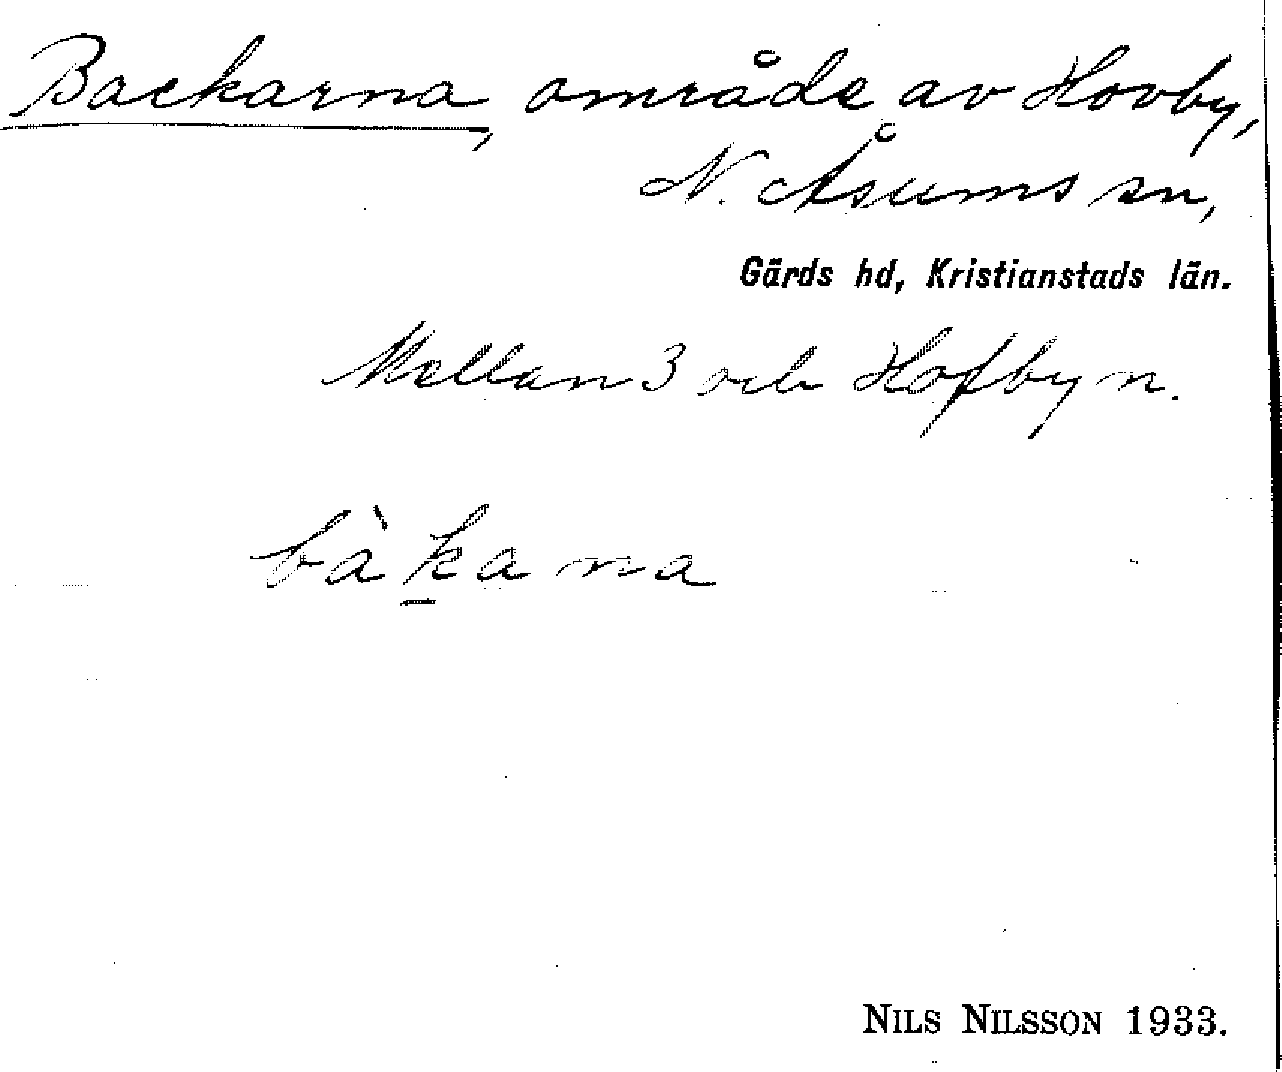 Backarna, område av Hovby,
N. Åsums sn,
Gärds hd, Kristianstads län.
Mellan 3 och Hofby n.
bàkana
NILS NILSSON 1933.